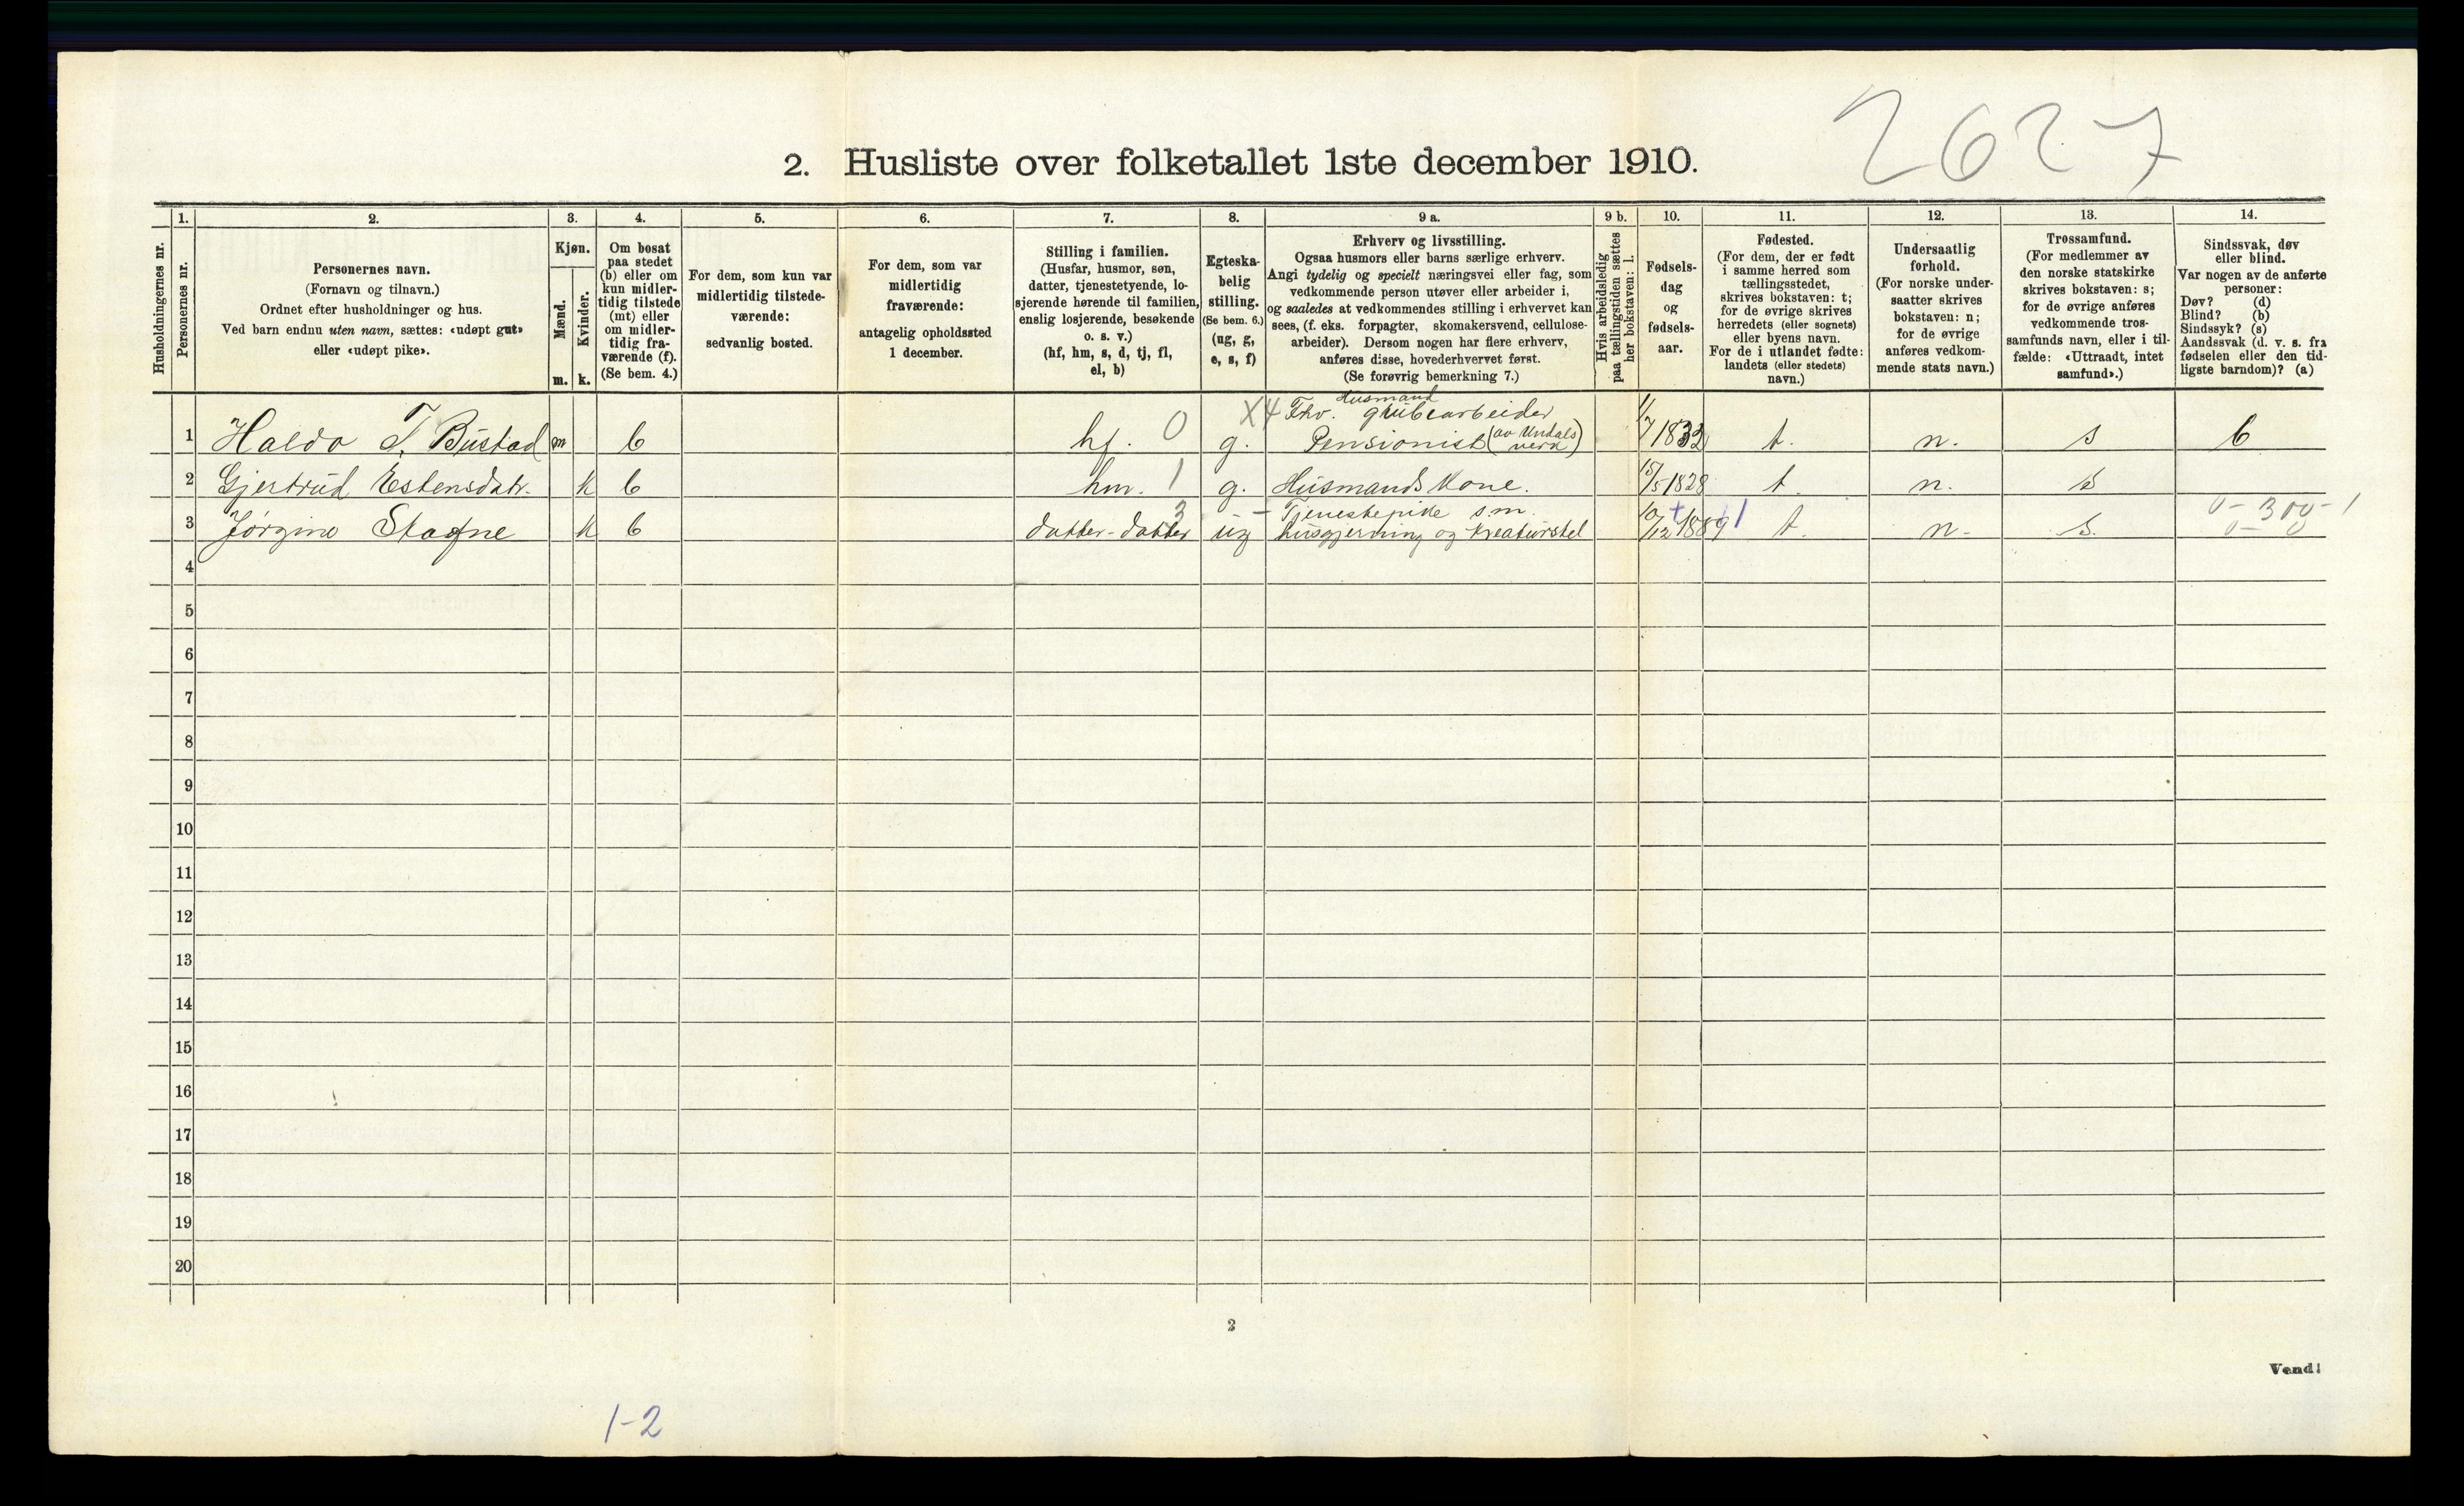 2627
2. Husliste over folketallet 1ste december 1910.
Husholdningernes nr.
1.
Personernes nr.
2.
Personernes navn.
(Fornavn og tilnavn.)
Ordnet efter husholdninger og hus.
Ved barn endnu uten navn, sættes: «udøpt gut»
eller «udøpt pike».
3.
Kjøn.
Mænd.
Kvinder.
m. k.
4.
Om bosat
paa stedet
(b) eller om
kun midler-
tidig tilstede
(mt) eller
om midler-
tidig fra-
værende (f).
(Se bem. 4.)
5.
For dem, som kun var
midlertidig tilstede-
værende:
sedvanlig bosted.
6.
For dem, som var
midlertidig
fraværende:
antagelig opholdssted
1 december.
7.
Stilling i familien.
(Husfar, husmor, søn,
datter, tjenestetyende, lo-
sjerende hørende til familien,
enslig losjerende, besøkende
o. s. v.)
(hf, hm, s, d, tj, fl,
el, b)
8.
Egteska-
belig
stilling.
(Se bem. 6.)
(ug, g,
e, s, f)
9 a.
Erhverv og livsstilling.
Ogsaa husmors eller barns særlige erhverv.
Angi tydelig og specielt næringsvei eller fag, som
vedkommende person utøver eller arbeider i,
og saaledes at vedkommendes stilling i erhvervet kan
sees, (f. eks. forpagter, skomakersvend, cellulose-
arbeider). Dersom nogen har flere erhverv,
anføres disse, hovederhvervet først.
(Se forøvrig bemerkning 7.)
9 b.
Hvis arbeidsledig
paa tællingstiden sættes
her bokstaven: l.
10.
Fødsels-
dag
og
fødsels-
aar.
11.
Fødested.
(For dem, der er født
i samme herred som
tællingsstedet,
skrives bokstaven: t;
for de øvrige skrives
herredets (eller sognets)
eller byens navn.
For de i utlandet fødte:
landets (eller stedets)
navn.)
12.
Undersaatlig
forhold.
(For norske under-
saatter skrives
bokstaven: n;
for de øvrige
anføres vedkom-
mende stats navn.)
13.
Trossamfund.
(For medlemmer av
den norske statskirke
skrives bokstaven: s;
for de øvrige anføres
vedkommende tros-
samfunds navn, eller i til-
fælde: «Uttraadt, intet
samfund».)
14.
Sindssvak, døv
eller blind.
Var nogen av de anførte
personer:
Døv? (d)
Blind? (b)
Sindssyk? (s)
Aandssvak (d. v. s. fra
fødselen eller den tid-
ligste barndom)? (a)
Husmand
X4 Fhv. grubearbeider
1 Haldo T. Bustad m b hf. 0 g. Pensionist (av Undals verk) 1/7 1832 t. n. s b
2 Gjertrud Estensdatr. k b hm. 1 g. Husmands kone. 15/5 1828 t. n. s
3 - Tjenestepike s.m. 0 - 300 - 1
3 Jørgine Stafne k b datter-datter ug husgjerning og kreaturstel 10/12 1889 t. n. s. 0 - 0
4
5
6
7
8
9
10
11
12
13
14
15
16
17
18
19
20
2
Vend!
1-2